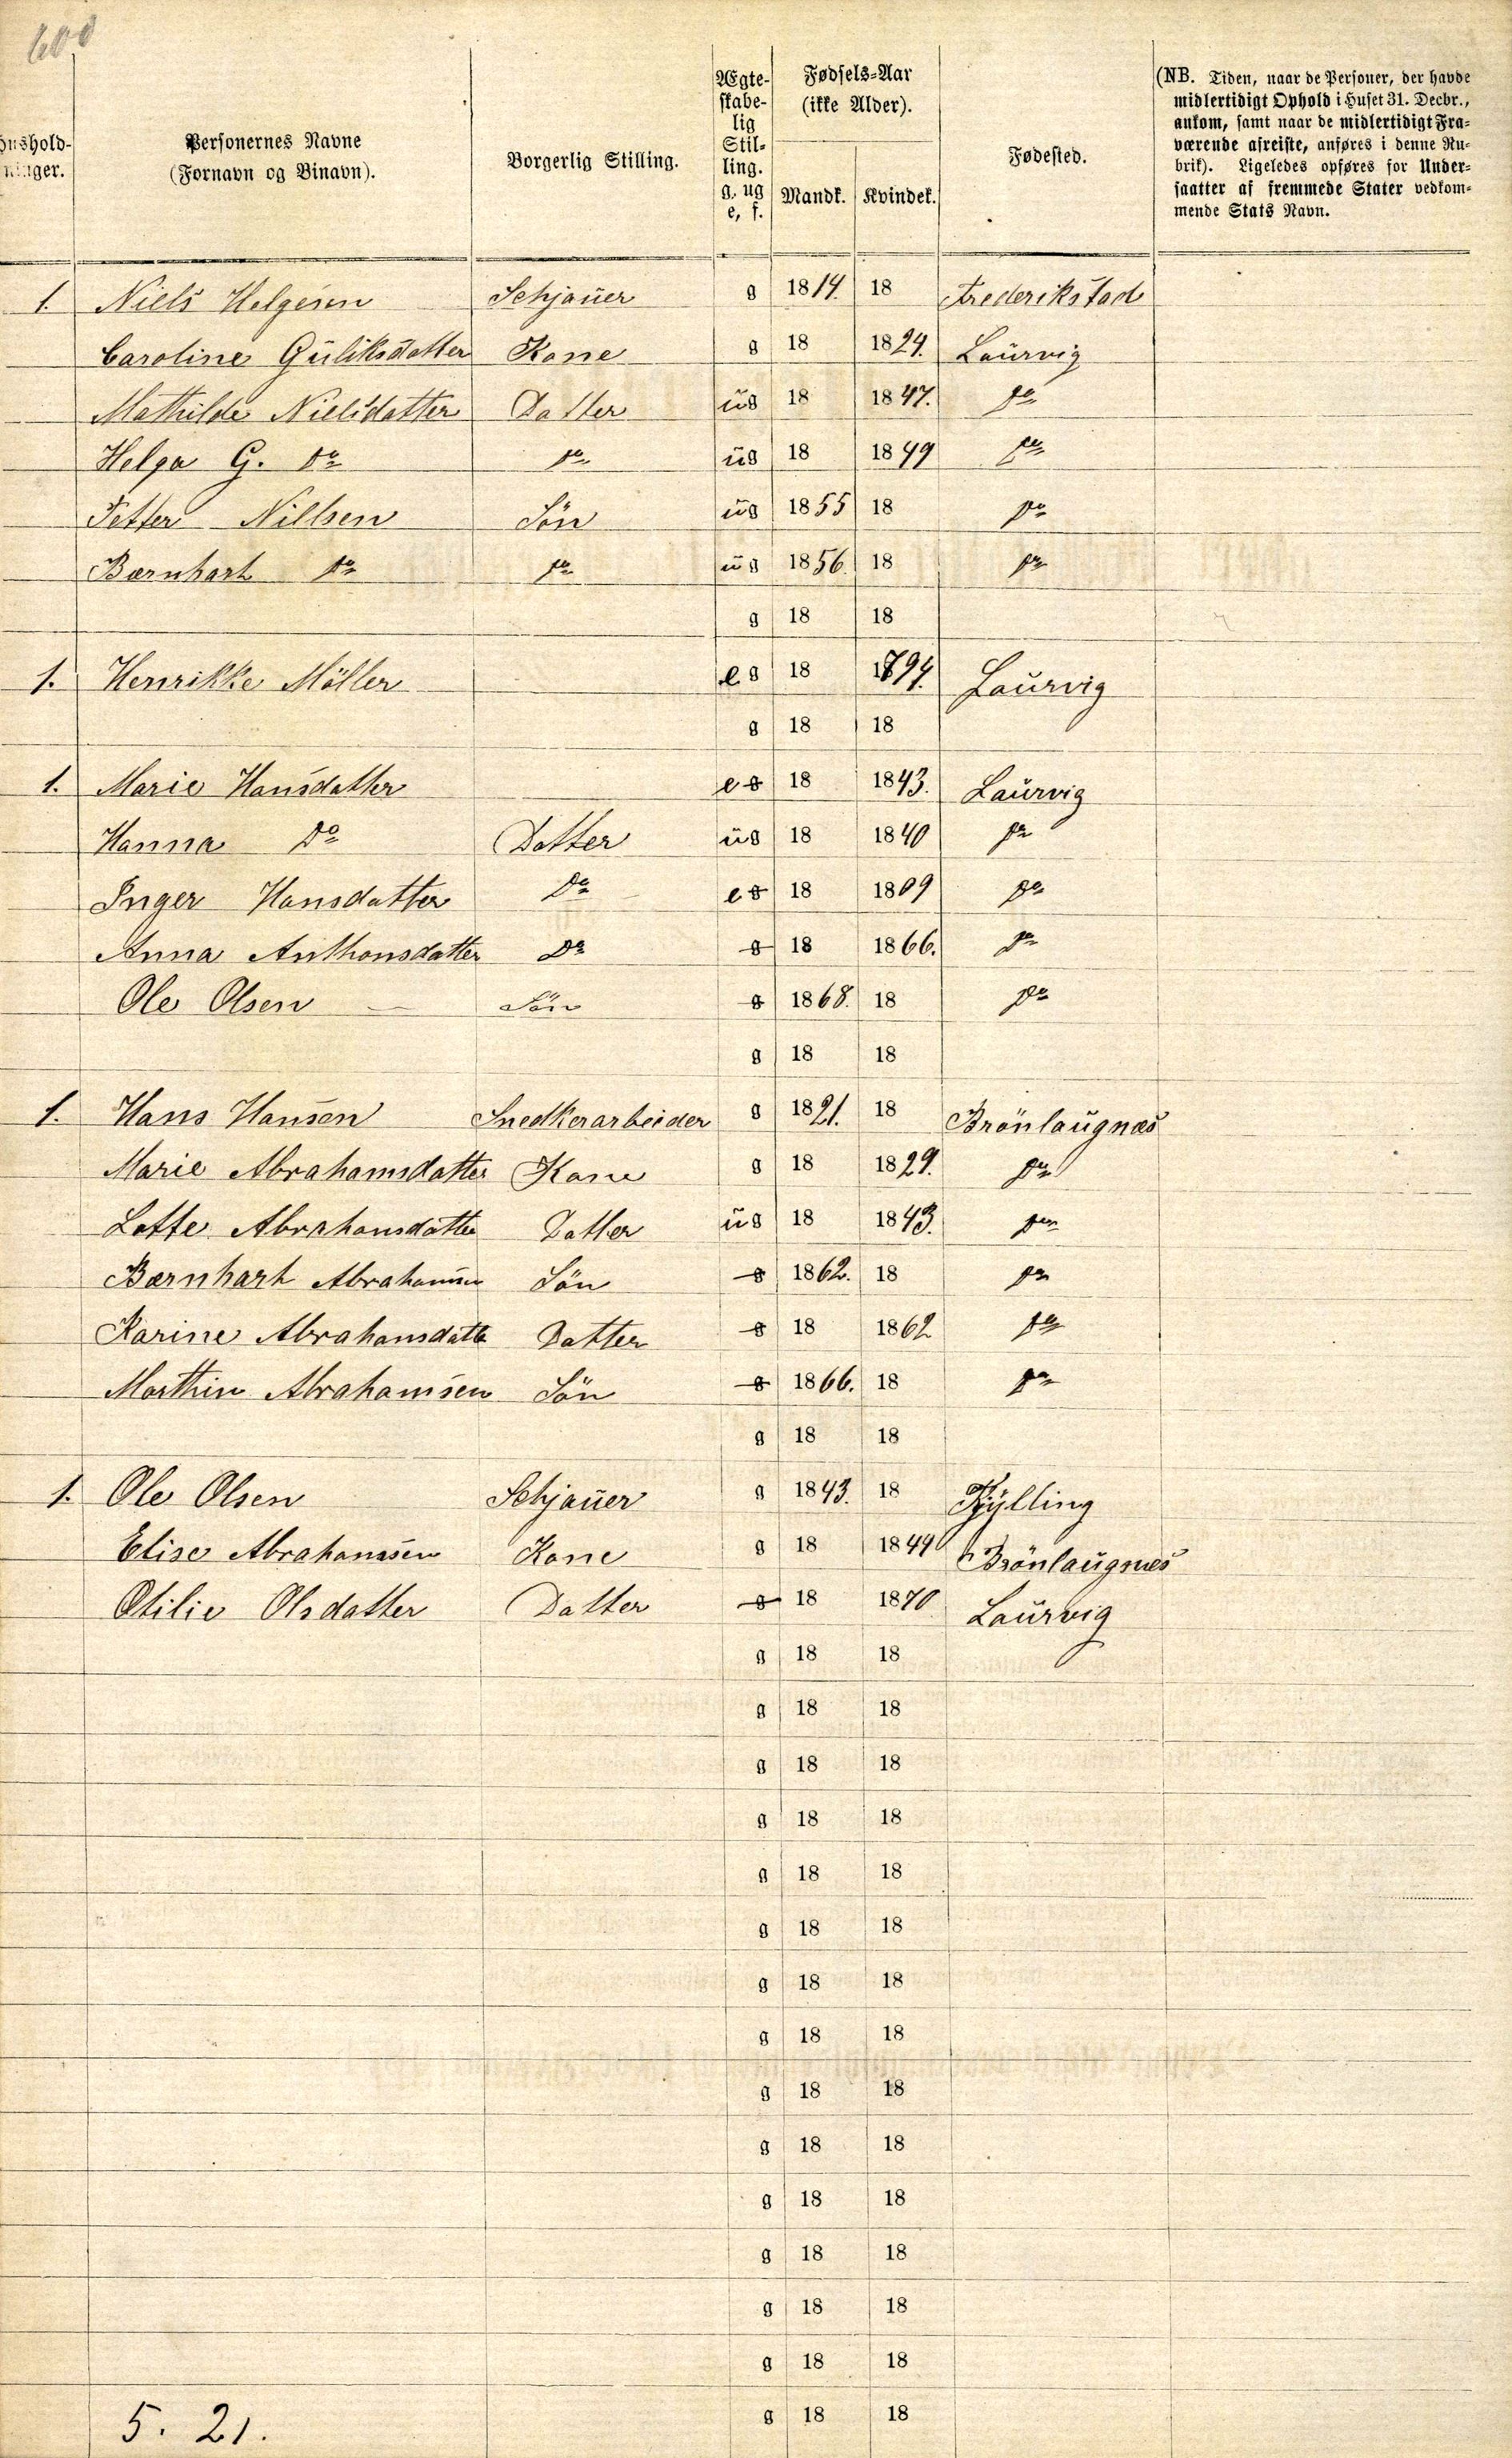 600
hushold-
ninger.
Personernes Navne
(Fornavn og Binavn).
Borgerlig Stilling.
Ægte-
skabe-
lig
Stil-
ling.
g. ug
e, f.
Fødsels-Aar
(ikke Alder).
Mandk. Kvindek.
Fødested.
(NB. Tiden, naar de Personer, der havde
midlertidigt Ophold i Huset 31. Decbr.,
ankom, samt naar de midlertidigt Fra-
værende afreiste, anføres i denne Ru-
brik). Ligeledes opføres for Under-
saatter af fremmede Stater vedkom-
mende Stats Navn.
1. Niels Helgesen Schjauer g 1814. 18 Frederikstad
Caroline Guliksdatter Kone g 18 1824. Laurvig
Mathilde Nielsdatter Datter ug 18 1847. do
Helga G. do do ug 18 1849 do
Petter Nilsen Sön ug 1855 18 do
Bærnhart do do ug 1856. 18 do
g 18 18
1. Henrikke Möller e g 18 1794. Laurvig
g 18 18
1. Marie Hansdatter e g 18 1843. Laurvig
Hanna Do Datter ug 18 1840 do
Inger Hansdatter Do e g 18 1809 do
Anna Anthonsdatter Do g 18 1866. do
Ole Olsen Sön g 1868. 18 do
g 18 18
1. Hans Hansen Snedkerarbeider g 1821. 18 Brönlaugnæs
Marie Abrahamsdatter Kone g 18 1829. do
Lotte Abrahamsdatter Datter ug 18 1843. do
Bærnhart Abrahamsen Sön g 1862. 18 do
Karine Abrahamsdatte Datter g 18 1862 do
Marthin Abrahamsen Sön g 1866. 18 do
g 18 18
1. Ole Olsen Schjauer g 1843. 18
Elise Abrahamsen Kone g 18 1844 Brönlaugnæs
Otilie Olsdatter Datter g 18 1870 Laurvig
g 18 18
g 18 18
g 18 18
g 18 18
g 18 18
g 18 18
g 18 18
g 18 18
g 18 18
g 18 18
g 18 18
g 18 18
g 18 18
g 18 18
g 18 18
5. 21.